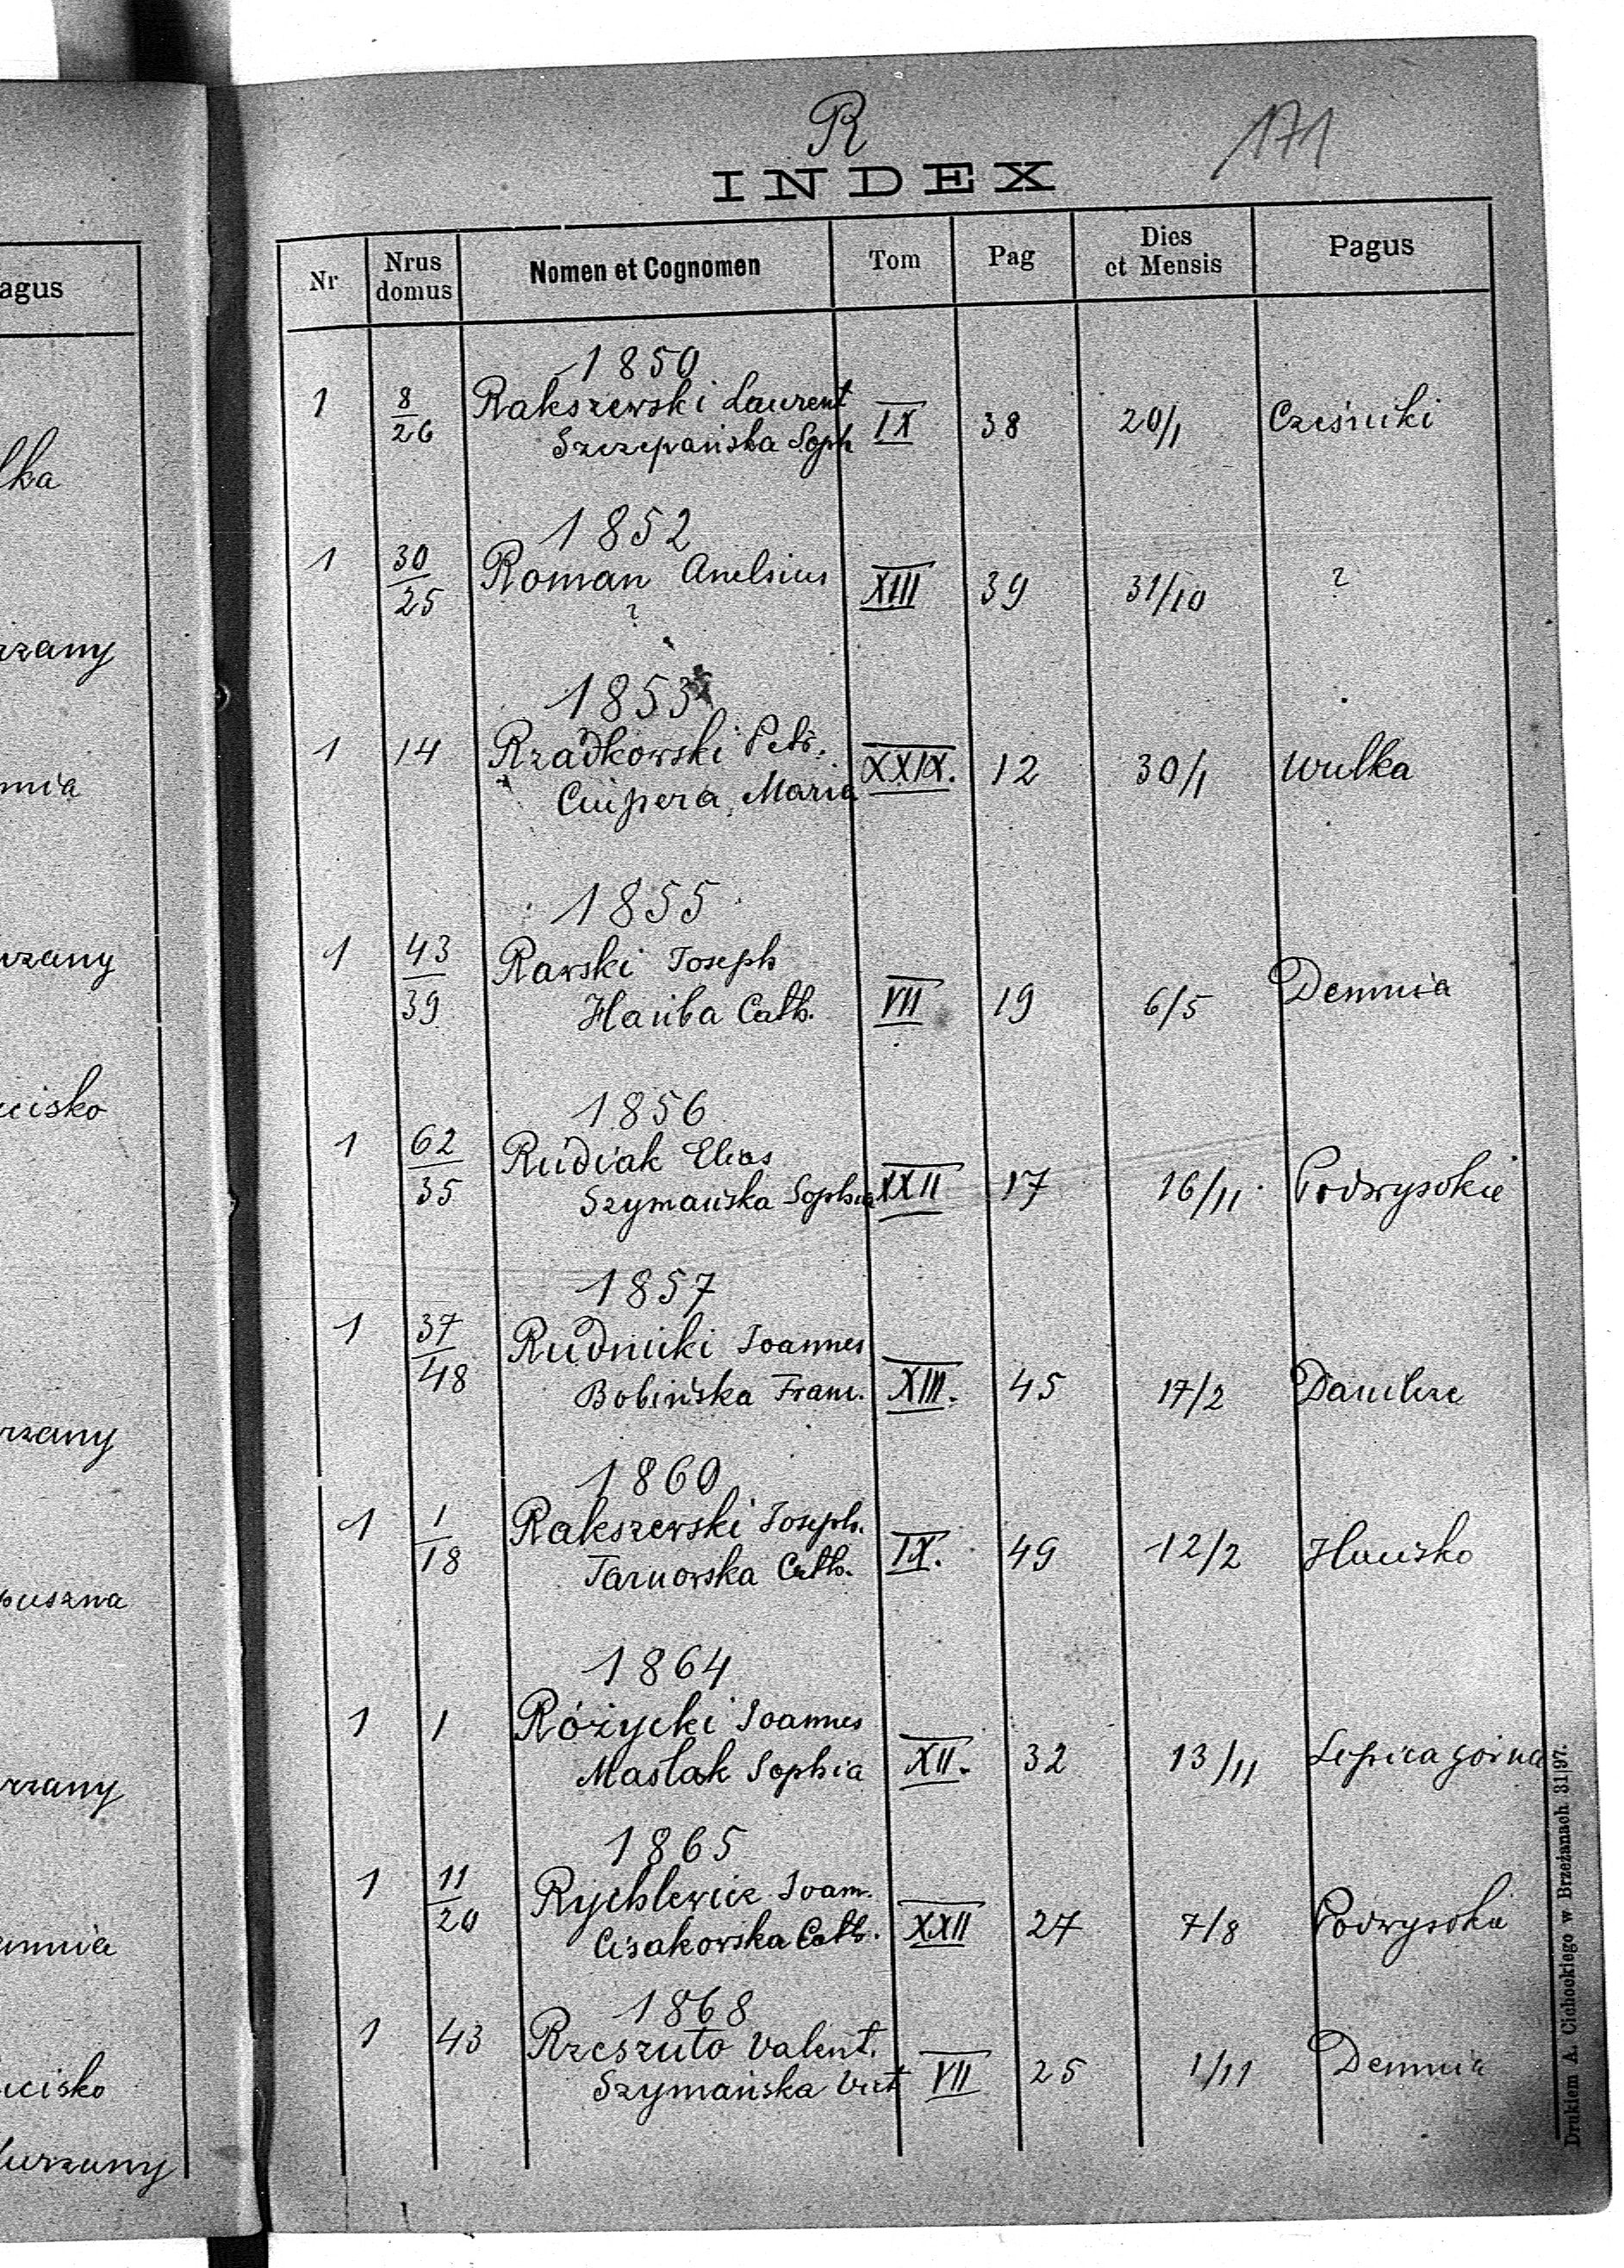 agus
lka
rzany
mnia
urzany
ucisko
rzany
puszna
rzany
amnia
ucisko
urzany
R
171
INDEX
Nr Nrus domus Nomen et Cognomen Tom Pag Dies et Mensis Pagus
1850
1 8/26 Rakszewski Laurent IX 38 20/1 Cześniki
Szczepańska Soph
1852
1 30/25 Roman XIII 39 31/10 ?
?
1853
1 14 Rządkowski Petr. XXIX. 12 30/1 Wulka
Ciupera Maria
1855
1 43/39 Rawski Joseph VII 19 6/5 Demnia
Hańba Cath.
1856
1 62/35 Rudiak Elias XXII 17 16/11 Podwysokie
Szymańska Sophia
1857
1 37/48 Rudnicki Joannes XIII. 45 17/2 Danilcze
Bobińska Franc.
1860
1 1/18 Rakszewski Joseph. IX. 49 12/2
Tarnowska Cath.
1864
1 1 Różycki Joannes XII. 32 13/11 Lipica górna
Maślak Sophia
1865
1 11/20 Rychlewicz Joan. XXII 27 7/8 Podwysokie
Cisakowska Cath.
1868
1 43 Rzeszuto Valent. VII 25 1/11 Demnia
Szymańska Vict
Drukiem A. Cichockiego w Brzeżanach 31|97.